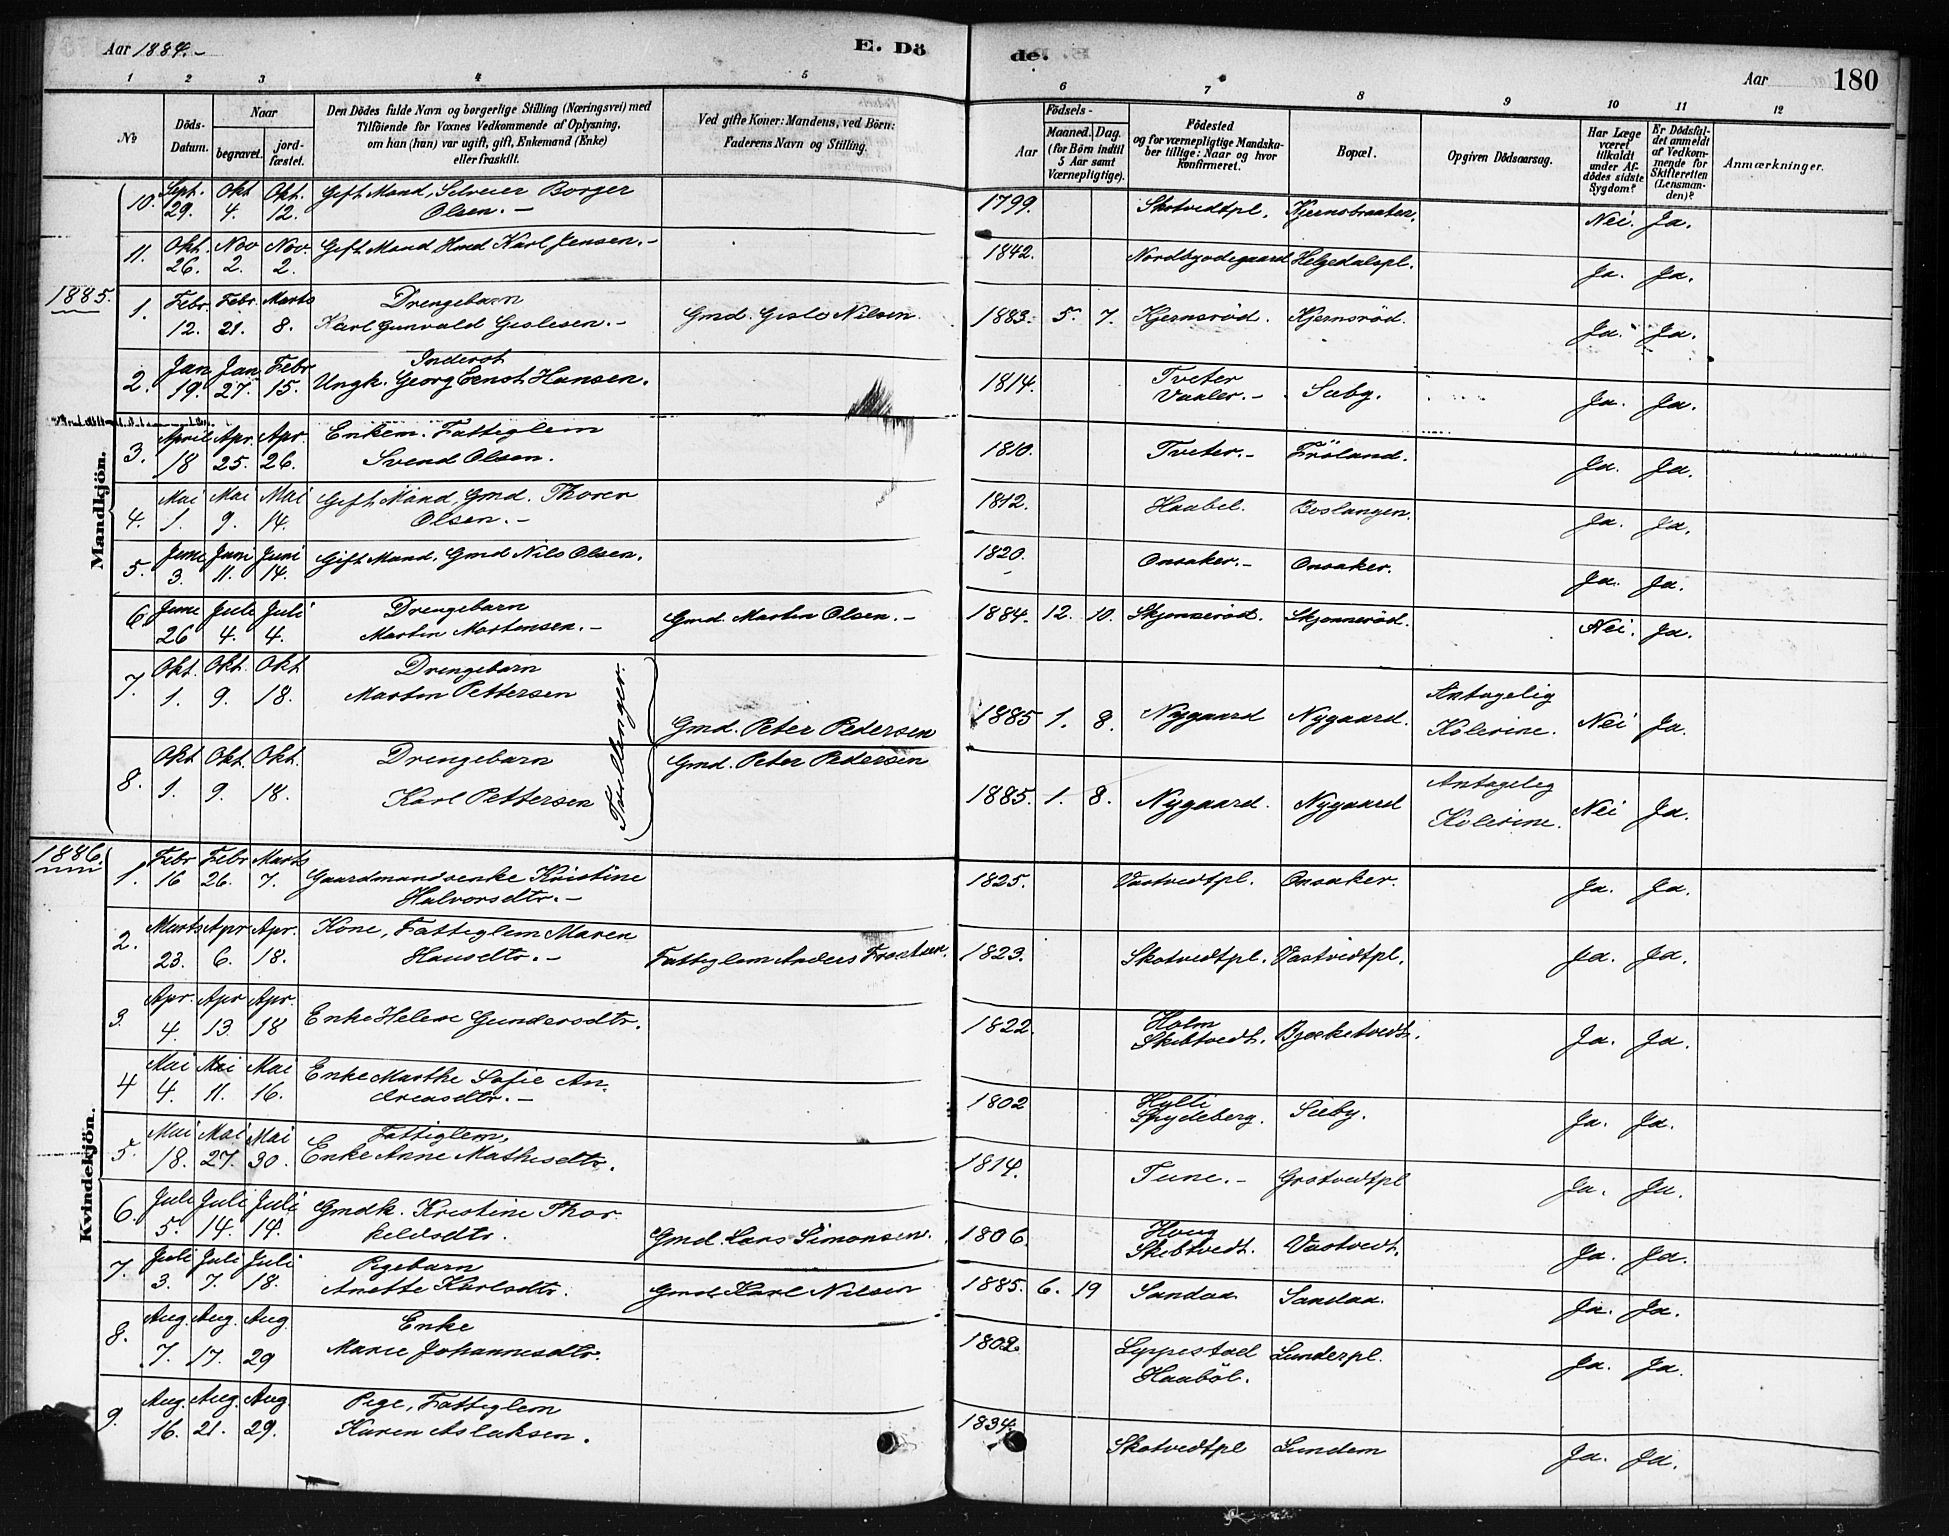 Aar 1884.-
E. Dö
de.
Aar 180
1 2 3 4 5 6 7 8 9 10 11 12
No
Döds-
Datum.
Naar
begravet.
jord-
fæstet.
Den Dödes fulde Navn og borgerlige Stilling (Næringsvei) med
Tilföiende for Voxnes Vedkommende af Oplysning,
om han (hun) var ugift, gift, Enkemand (Enke)
eller fraskilt.
Ved gifte Koner: Mandens, ved Börn:
Faderens Navn og Stilling.
Födsels-
Aar
Maaned. Dag.
(for Börn indtil
5 Aar samt
Værnepligtige).
Födested
og for værnepligtige Mandska-
ber tillige: Naar og hvor
konfirmeret.
Bopæl.
Opgiven Dödsaarsag.
Har Læge
været
tilkaldt
under Af-
dödes sidste
Sygdom?
Er Dödsfal-
det anmeldt
af Vedkom-
mende for
Skifteretten
(Lensman-
den)?
Anmærkninger.
Mandkjön.
10. Sept. 29. Okt 4. Okt. 12. Gift Mand, Selveier Borger
Olsen.- 1799. Skotvedtpl. Kjernsbraaten. Nei. Ja.
11. Okt. 26. Nov 2. Nov. 2. Gift Mand Hmd Karl Jensen.- 1842. Nordbyødegaard Helgedalspl. Ja. Ja.
1885.
1. Febr. 12. Febr. 21. Marts 8. Drengebarn
Karl Gunvald Gislesen.- Gmd. Gisle Nilsen 1883. 5. 7. Kjernsröd. Kjernsröd. Ja. Ja.
2. Jan 19. Jan 27. Febr 15. Inderst
Ungk. Georg Ernst Hansen. 1814. Tveter
Vaaler.- Sæby. Ja. Ja.
3. April 18 Apr. 25. Apr. 26. Enkem. Fattiglem
Svend Olsen. 1810. Tveter.- Fröland. Ja. Ja.
4. Mai 1. Mai 9. Mai 14. Gift Mand, Gmd. Thorer
Olsen.- 1812. Haabel. Boslangen. Ja. Ja.
5. Juni 3. Juni 11. Juni 14. Gift Mand, Gmd Nils Olsen. 1820. Onsaker.- Onsaker. Ja. Ja.
6 Juni 26 Juli 4. Juli 4. Drengebarn
Martin Martinsen.- Gmd. Martin Olsen.- 1884. 12. 10. Skjonneröd. Skjonneröd. Nei. Ja.
7. Okt. 1. Okt. 9. Okt 18. Drengebarn
Martin Pettersen
Gmd. Peter Pedersen 1885 1. 8. Nygaard Nygaard. Antagelig
Kolerine. Nei Ja.
Tvillinger.
8. Okt 1. Okt. 9. Okt. 18. Drengebarn
Karl Pettersen Gmd. Peter Pedersen 1885. 1. 8. Nygaard. Nygaard Antagelig
Kolerine. Nei Ja.
1886.
Kvindekjön.
1. Febr 16 Febr 26. Marts 7. Gaardmandsenke Kristine
Halvorsdtr.- 1825. Vastvedtpl. Onsaker. Ja. Ja.
2. Marts 23. Apr 6. Apr. 18. Kone, Fattiglem Maren
Hansdtr.- Fattiglem Anders 1823. Skotvedtpl. Vastvedtpl. Ja. Ja.
3. Apr. 4. Apr 13. Apr. 18 Enke Helene Gundersdtr. 1822. Holm
Skibtvedt. Bjerketvedt. Ja. Ja.
4 Mai 4. Mai 11. Mai 16. Enke Marthe Sofie An-
dreasdtr.- 1802 Hylli
Spydeberg. Sæby. Ja. Ja.
5. Mai 18. Mai 27. Mai 30. Fattiglem,
Enke Anne Mathisdtr. 1814. Tune.- Grotvedtpl Ja. Ja.
6. Juli 5. Juli 14. Juli 14. Gmdk. Kristine Thor
keldsdtr. Gmd. Lars Simonsen. 1806. Houg
Skibtvedt. Vastvedt. Ja. Ja.
7. Juli 3. Juli 7. Juli 18. Pigebarn
Anette Karlsdtr. Gmd Karl Nilsen 1885. 6. 19 Sandaa Sandaa. Ja. Ja.
8. Aug. 7. Aug. 17. Aug. 29 Enke
Marie Johannesdtr. 1802. Lippestad
Haaböl. Lunderpl. Ja. Ja.
9. Aug. 16. Aug. 21. Aug. 29. Pige, Fattiglem
Karen Aslaksen. 1834. Skotvedtpl Lundem Ja. Ja.